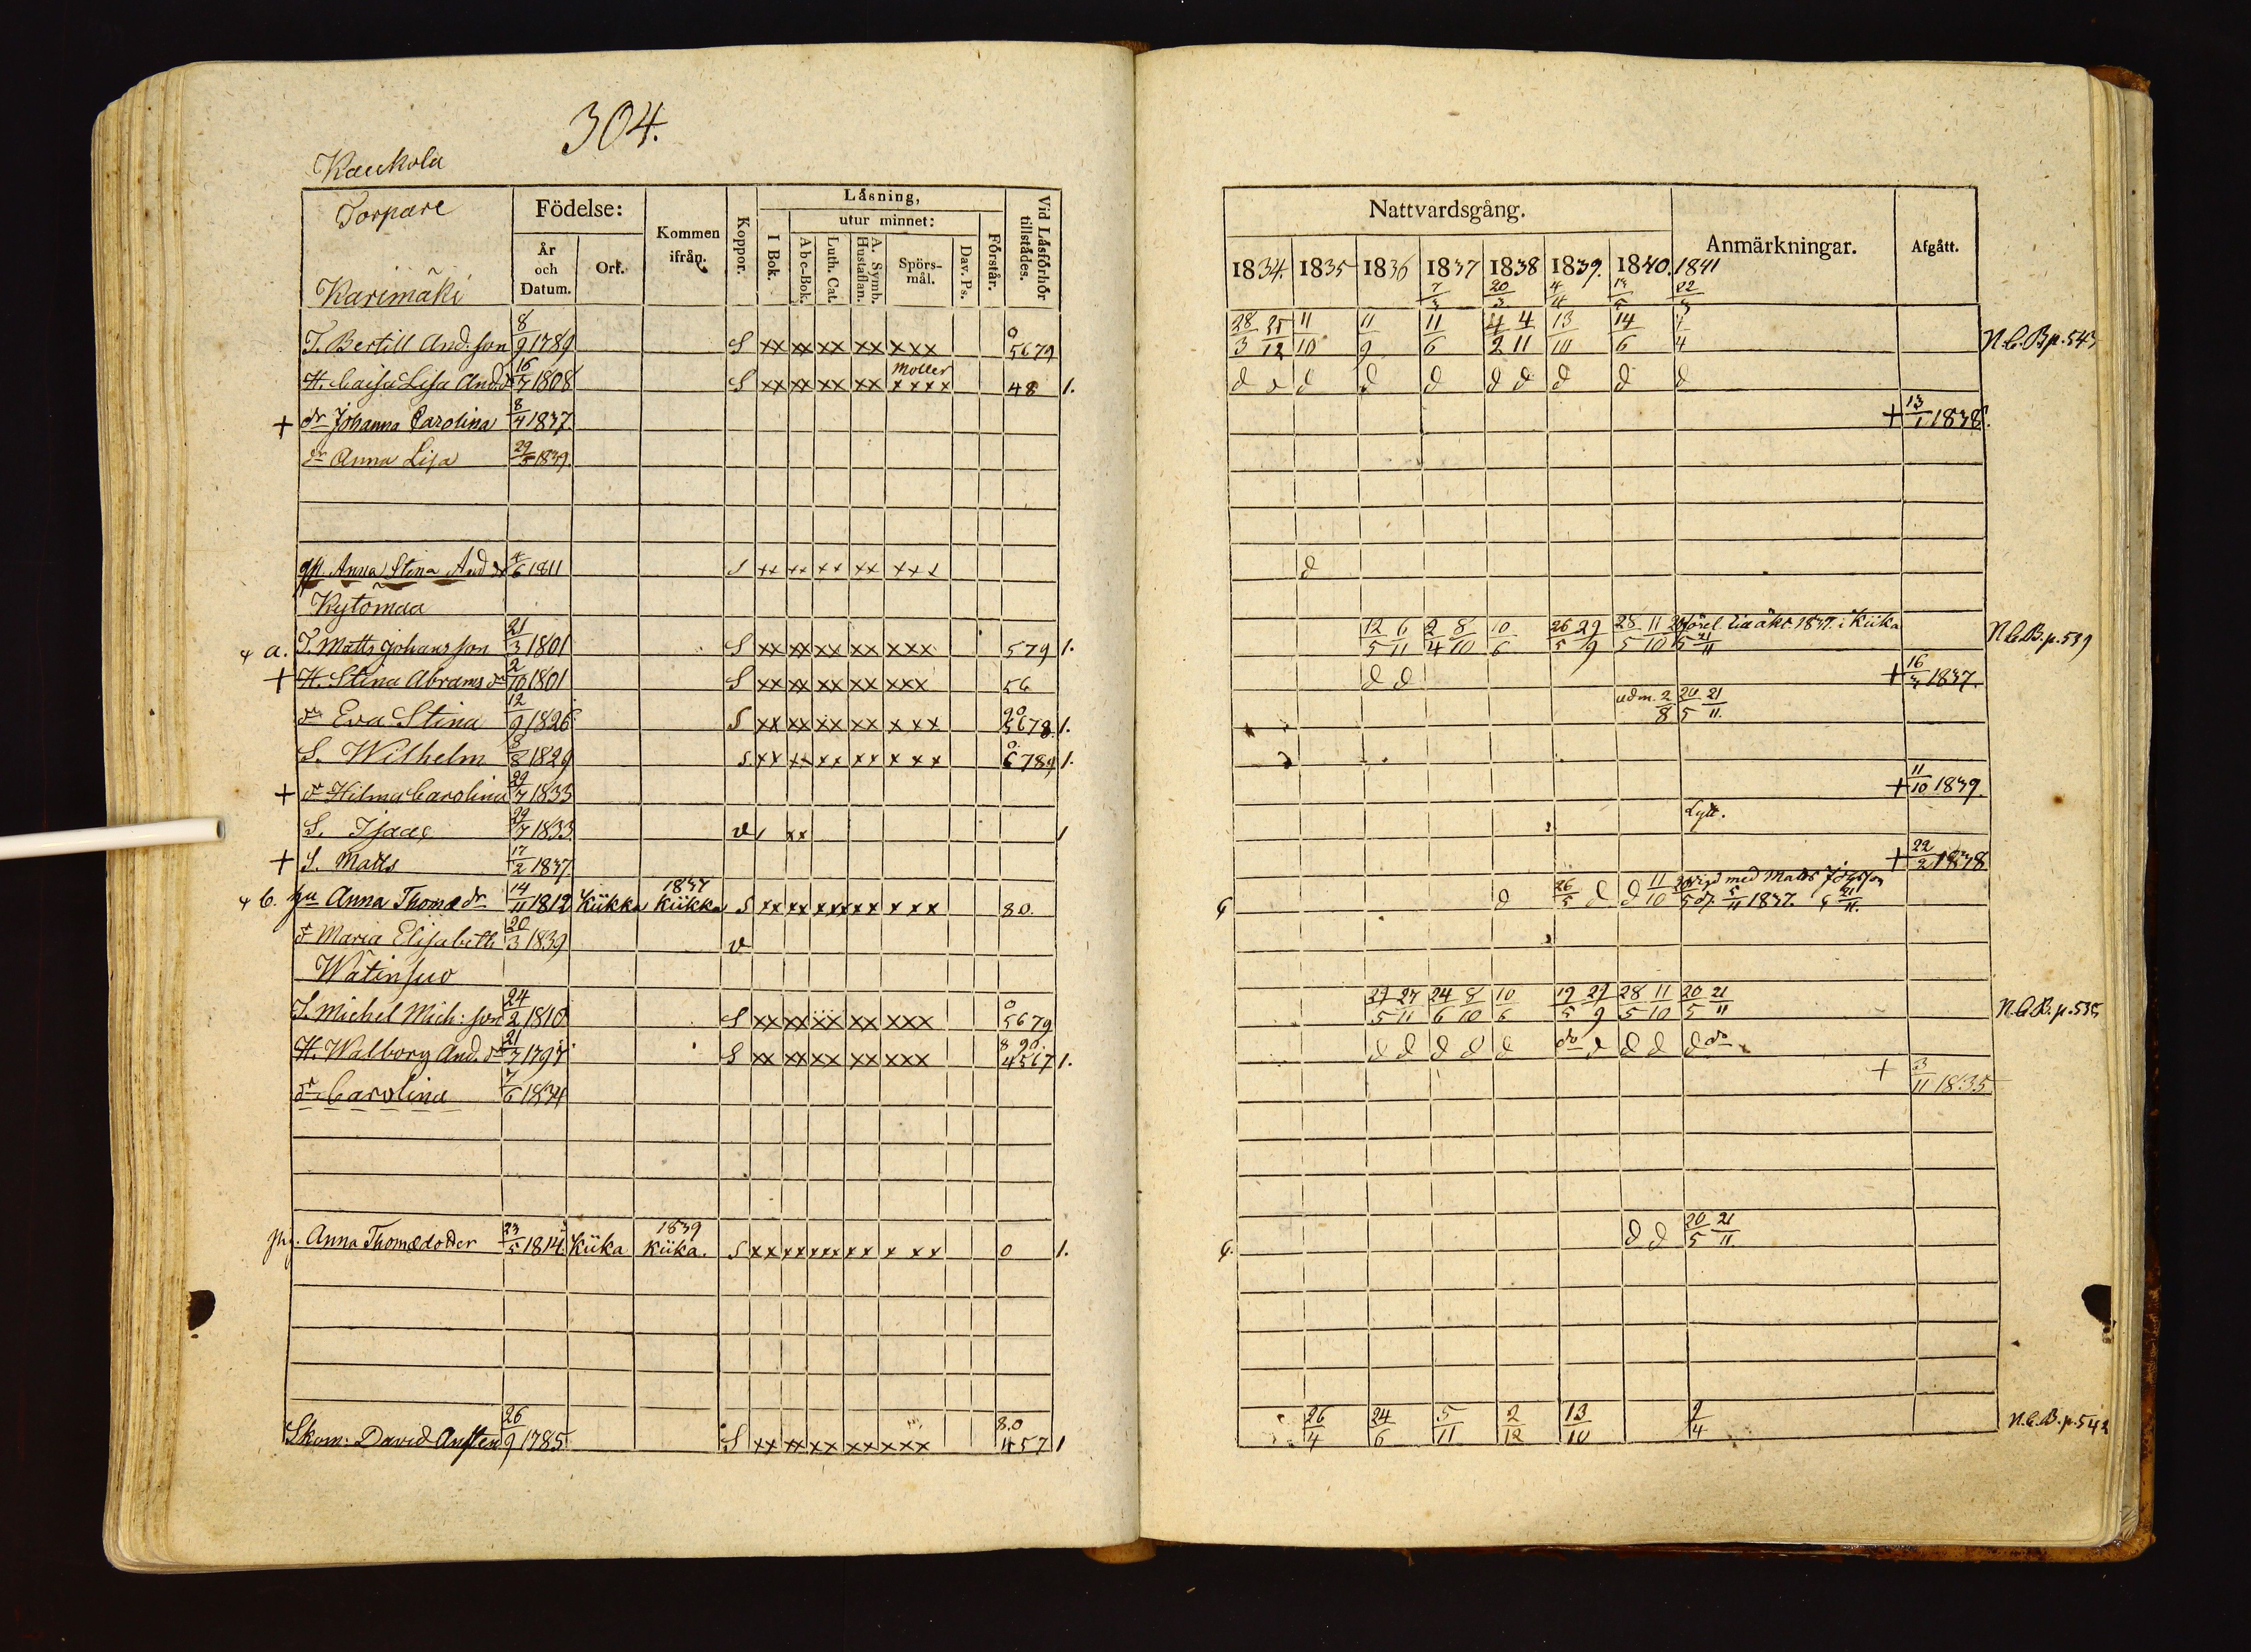 304.
Kaukola
Torpare
Födelse:
Kommen ifrån.
Koppor.
Läsning,
utur minnet:
Vid Läsförhör tillstädes.
År och Datum.
Ort.
I Bok.
Abc-Bok.
Luth. Cat.
A. Symb. Hustaflan.
Spörs-mål.
Dav. Ps.
Förstår.
Karimäki
T. Bertill And:son 8/9 1789 S xx xx xx xx xxx 0 5679
H. Caisa Lisa And.dr 16/7 1808 S xx xx xx xx Moller xxxx 48 1.
+ dr Johanna Carolina 8/4 1837
dr Anna Lisa 29/5 1839
Anna Stina And dr 4/6 1811 S xx xx xx xx xxx
Kytömaa
a. T. Matts Johansson 21/3 1801 S xx xx xx xx xxx 579 1.
+ H. Stina Abrams dr 2/10 1801 S xx xx xx xx xxx 56
dr Eva Stina 12/9 1826 S xx xx xx xx xxx 90 5678. 1.
S. Wilhelm 8/8 1829 S xx xx xx xx xxx 0. 6789 1.
+ dr Hilma Carolina 29/7 1833
S. Isaac 29/7 1833 v, xx 1
+ S. Matts 17/2 1837
b. hu Anna Thomædr 14/11 1812 Kiikka 1837 Kiikka S xx xx xx xx xxx 80.
dr Maria Elisabeth 20/3 1839 v
Wätinsuo
T. Michel Mich:son 24/2 1810 S xx xx xx xx xxx 0 5679
H. Walborg And. dr 21/3 1797 S xx xx xx xx xxx 8 90. 4567 1.
dr Carolina 7/6 1834
Anna Thomædotter 23/5 1814 Kiika 1839 Kiika. S xx xx xx xx xxx 0 1.
Skom: David Ansten 26/9 1785 S xx xx xx xx xxx 8.0 457 1
Nattvardsgång.
Anmärkningar.
Afgått.
1834. 1835 1836 1837 1838 1839. 1840. 1841
7/3 20/3 4/4 22/3
28/3 25/12 11/10 11/9 11/6 4/2 4/11 13/10 14/6 N.C.B. p. 543
d d d d d d d d d d
+ 13/1 1838.
d
12/5 6/11 2/4 8/10 10/6 26/5 29/9 28/5 11/10 20/5 21/11 1837. i Kiika N.C.B. p. 539
d d + 16/3 1837.
adm. 2/8 20/5 21/11.
+ 11/10 1839.
Lytt.
+ 22/2 1838
d 26/5 d d 11/10 20/5 vigd med Matts d. 5/11 1837. 21/11.
27/5 27/11 24/6 8/10 10/6 19/5 29/9 28/5 11/10 20/5 21/11 N.C.B. p. 535
d d d d d do d d d d do
+ 3/11 1835
d d 20/5 21/11.
26/4 24/6 5/11 2/12 13/10 2/4 N.C.B. p. 542